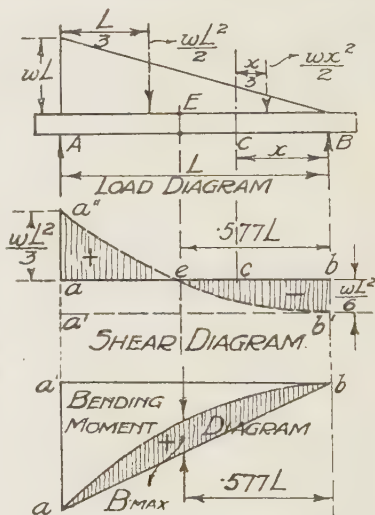 L/3
wL²/2
x/3
wx²/2
wL
E
A
C
B
x
L
LOAD DIAGRAM
a"
.577L
wL²/3
+
e
c
b
a
−
wL²/6
a'
b'
SHEAR DIAGRAM.
a'
b
BENDING
MOMENT
DIAGRAM
+
BMAX
.577L
a